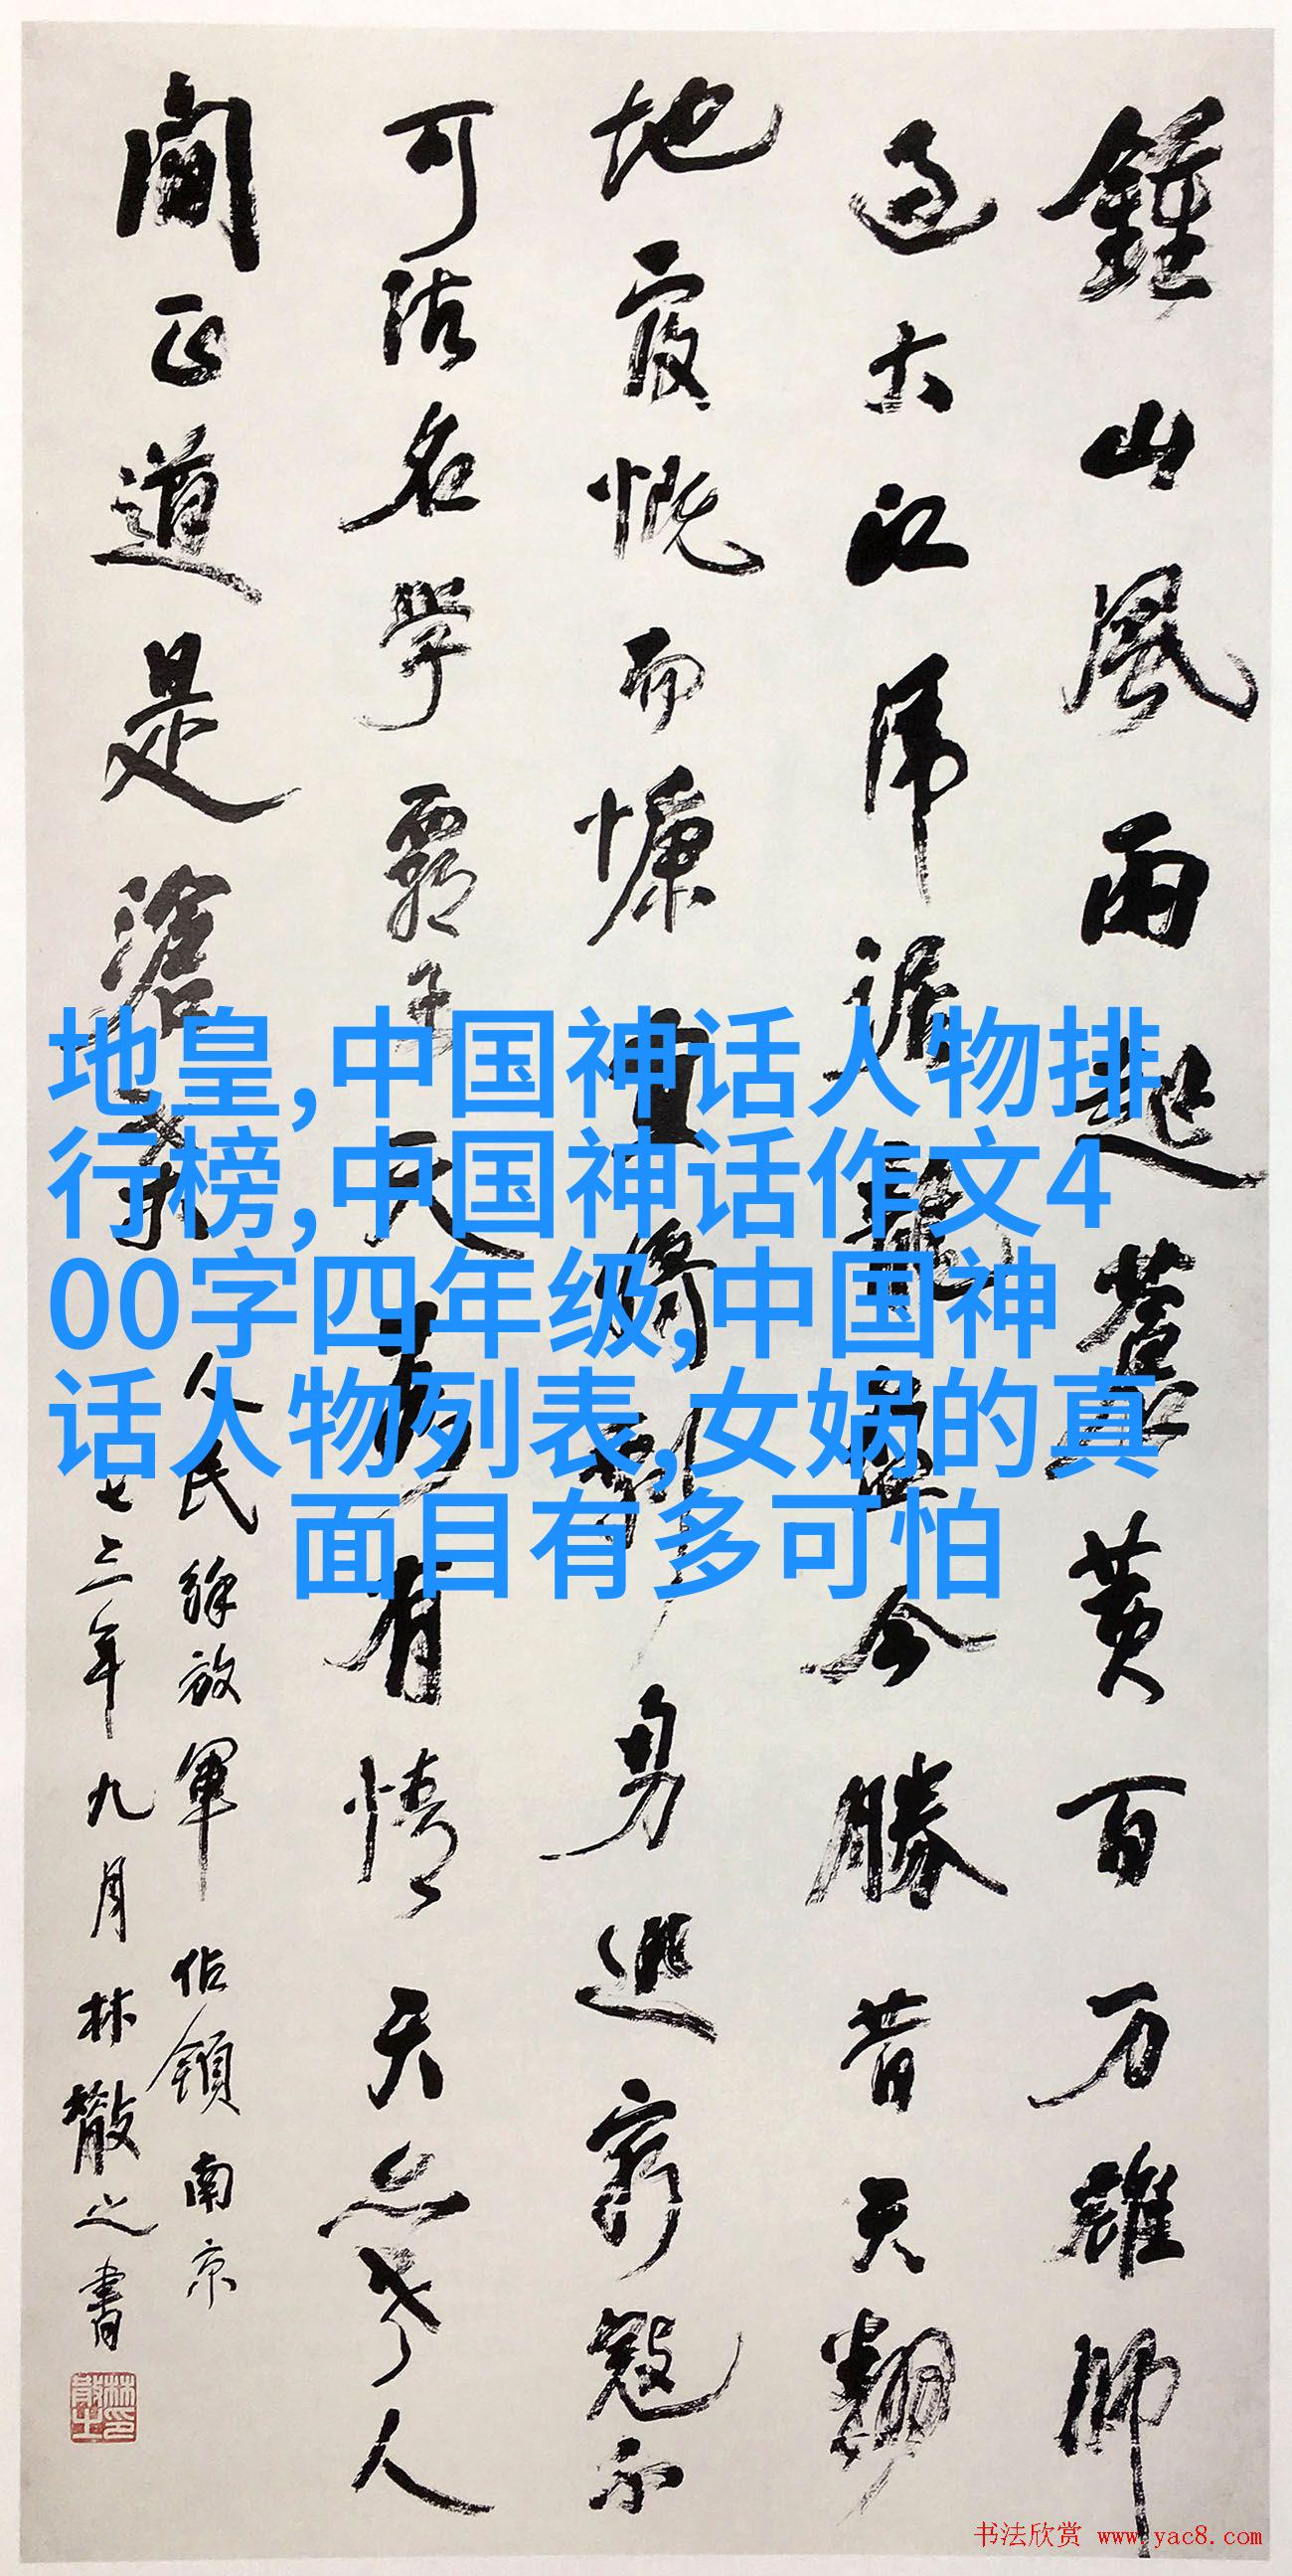 鍾山風雨起蒼黄百万雄師
过大江虎踞龍盘今勝昔天翻
地覆慨而慷宜将剩勇追窮寇不
可沽名學霸王天若有情天亦老人
间正道是滄桑
人民解放軍佔領南京
七三年九月林散之書
地皇,中国神话人物排
行榜,中国神话作文4
00字四年级,中国神
话人物列表,女娲的真
面目有多可怕
书法欣赏 www.yac8.com